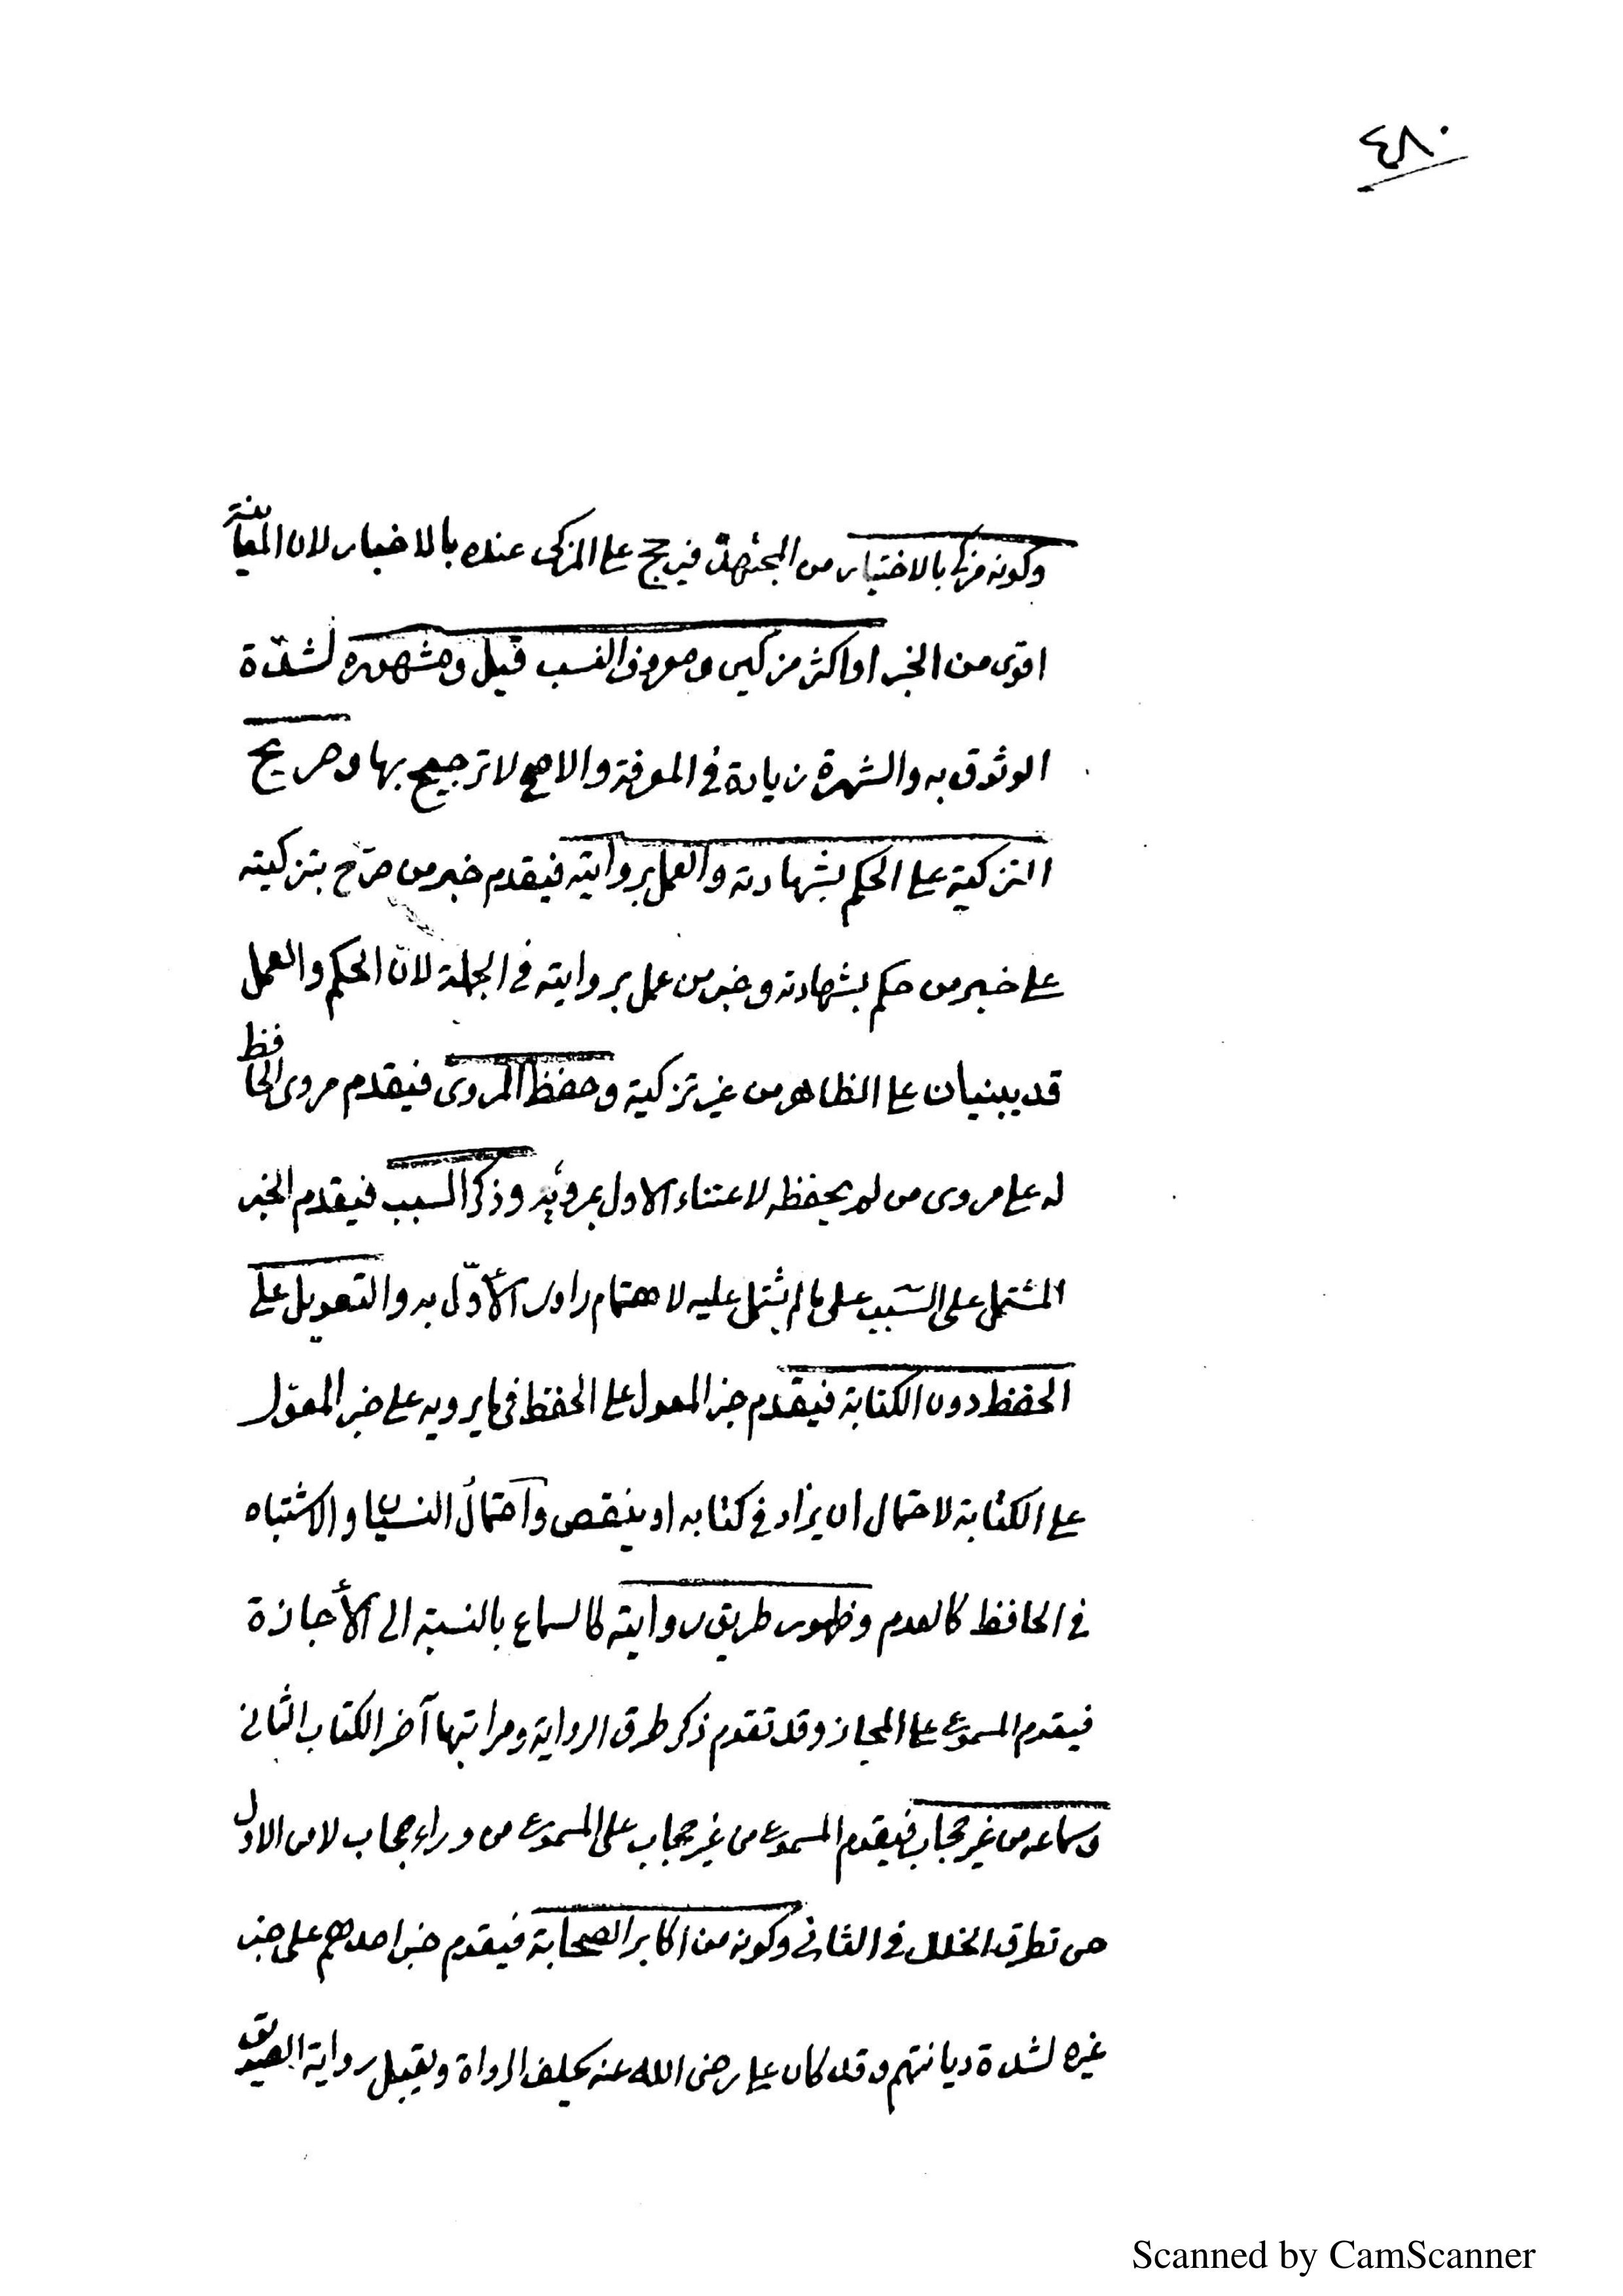 ٤٨٠
وكونه مزكى بالاختبار من المجتهد فيرجح على المزكى عنده بالاخبار لان المعاينة
اقوى من الخبر او اكثر مزكين ومعروف النسب قيل ومشهوره لشدّة
الوثوق به والشهرة زيادة في المعرفة والاصح لا ترجيح بها وصريح
التزكية على الحكم بشهادته والعمل بروايته فيقدم خبر من صرّح بتزكيته
على خبر من حكم بشهادته وخبر من عمل بروايته في الجملة لانّ الحكم والعمل
قد يبنيان على الظاهر من غير تزكية وحفظ المروى فيقدم مروى الحافظ
له على مروى من لم يحفظه لاعتناء الاول بمرويّه وذكر السبب فيقدم الخبر
المشتمل على السّبب على ما لم يشتمل عليه لاهتمام راوى الأوّل به والتعويل على
الحفظ دون الكتابة فيقدم خبر المعول على الحفظ فى ما يرويه على خبر المعوّل
على الكتابة لاحتمال ان يزاد في كتابه او ينقص واحتمال النسيان والاشتباه
في الحافظ كالعدم وظهور طريق روايته كالسماع بالنسبة الى الأجازة
فيقدم المسموع على المجاز وقد تقدم ذكر طرق الرواية ومراتبها آخر الكتاب الثانى
وسماعه من غير حجاب فيقدم المسموع من غير حجاب على المسموع من وراء حجاب لامن الاول
من تطرق الخلل في الثانى وكونه من اكابر الصحابة فيقدم خبر احدهم على خبر
غيره لشدة ديانتهم وقد كان على رضى الله عنه يحلف الرواة ويقبل رواية الصديق
Scanned by CamScanner